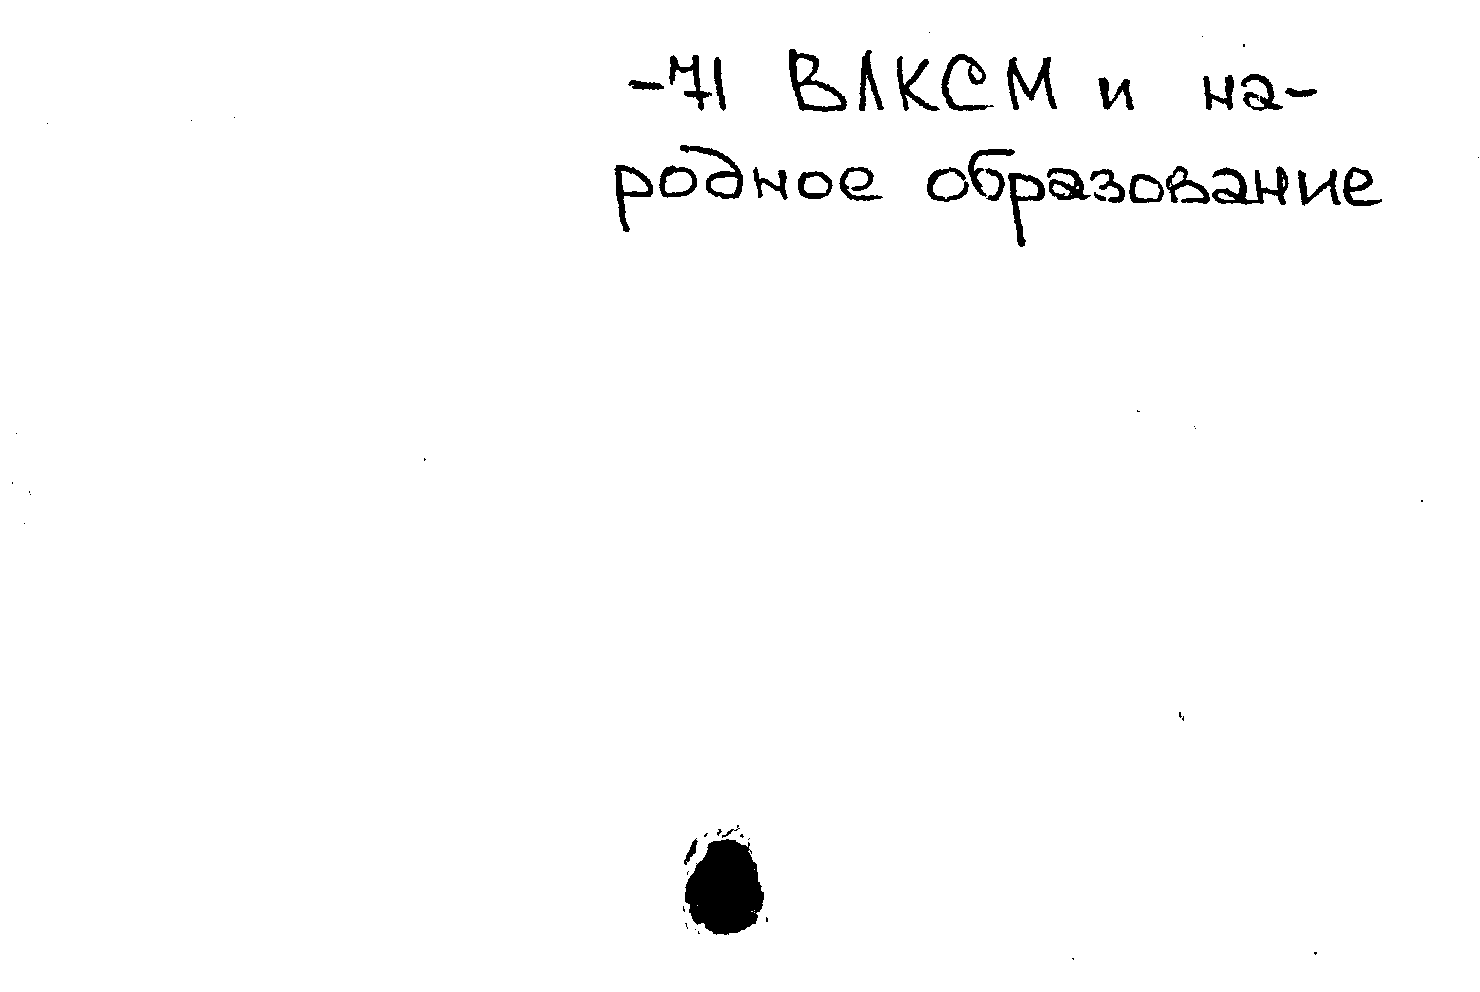 -71 ВЛКСМ и на-
родное образование